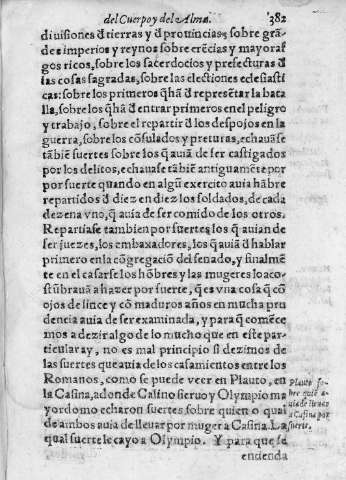 del Cuerpo y del Alma.
382
diuisiones d̄ tierras y d̄ prouincias, sobre grā-
des imperios y reynos sobre erēcias y mayoraz
gos ricos, sobre los sacerdocios y prefecturas d̄
las cosas sagradas, sobre las electiones eclesiasti
cas: sobre los primeros q̄ hā d̄ represētar la bata
lla, sobre los q̄ hā d̄ entrar primeros en el peligro
y trabajo, sobre el repartir d̄ los despojos en la
guerra, sobre los cōsulados y preturas, echauāse
tābiē suertes sobre los q̄ auiā de ser castigados
por los delitos, echauāse tābiē antiguamēte por
por suerte quando en algū exercito auia hābre
repartidos d̄ diez en diez los soldados, de cada
dezena vno, q̄ auia de ser comido de los otros.
Repartiase tambien por suertes los q̄ auian de
ser juezes, los embaxadores, los q̄ auiā d̄ hablar
primero en la cōgregaciō del senado, y finalmē
te en el casarse los hōbres y las mugeres lo aco-
stūbrauā a hazer por suerte, q̄ es vna cosa q̄ cō
ojos de lince y cō maduros años en mucha pru
dencia auia de ser examinada, y para q̄ comēce
mos a dezir algo de lo mucho que en este par-
ticular ay, no es mal principio si dezimos de
las suertes que auia de los casamientos entre los
Romanos, como se puede veer en Plauto, en
la Casina, adonde Calino sieruo y Olympio ma
yordomo echaron suertes, sobre quien o qual
de ambos auia de lleuar por muger a Casina. La
qual suerte le cayo a Olympio. Y para que se
entienda
Plauto so-
bre quiē a-
uia de lleuar
a Casina por
suerte.